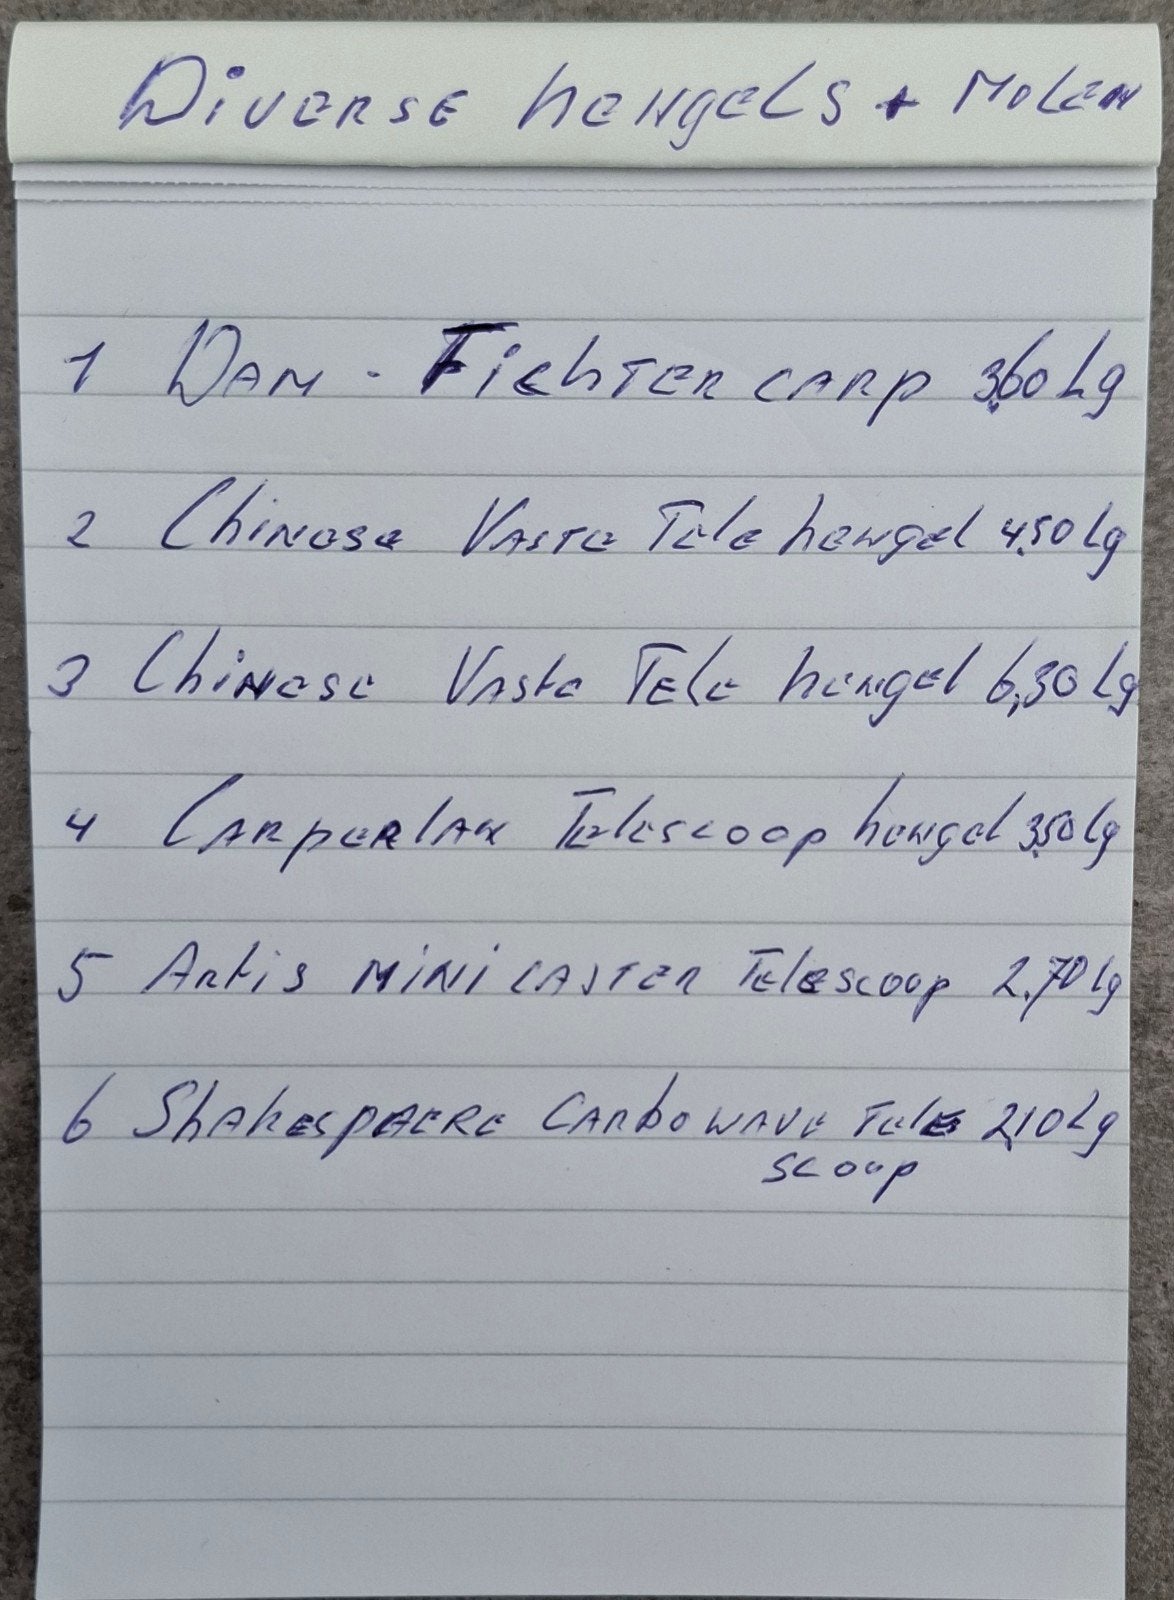 Diverse hengels + Molen
1 Dam - Fichter carp 3,60 Lg
2 Chinese Vaste Tele hengel 4,50 Lg
3 Chinese Vaste Tele hengel 6,30 Lg
4 Carperlax Telescoop hengel 3,50 Lg
5 Artis MiniCaster Telescoop 2,70 lg
6 Shakespaere Carbowave Tele 2,10 Lg
scoop